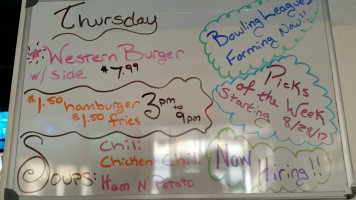 Thursday
* Western Burger
w/ side $7.99
$1.50 hamburger
$1.50 fries
3pm
to
9pm
Soups:
Chili
Chicken Chili
Ham 'N' Potato
Bowling Leagues
Forming Now!!
Picks
of the Week
Starting
8/28/17
Now
Hiring!!